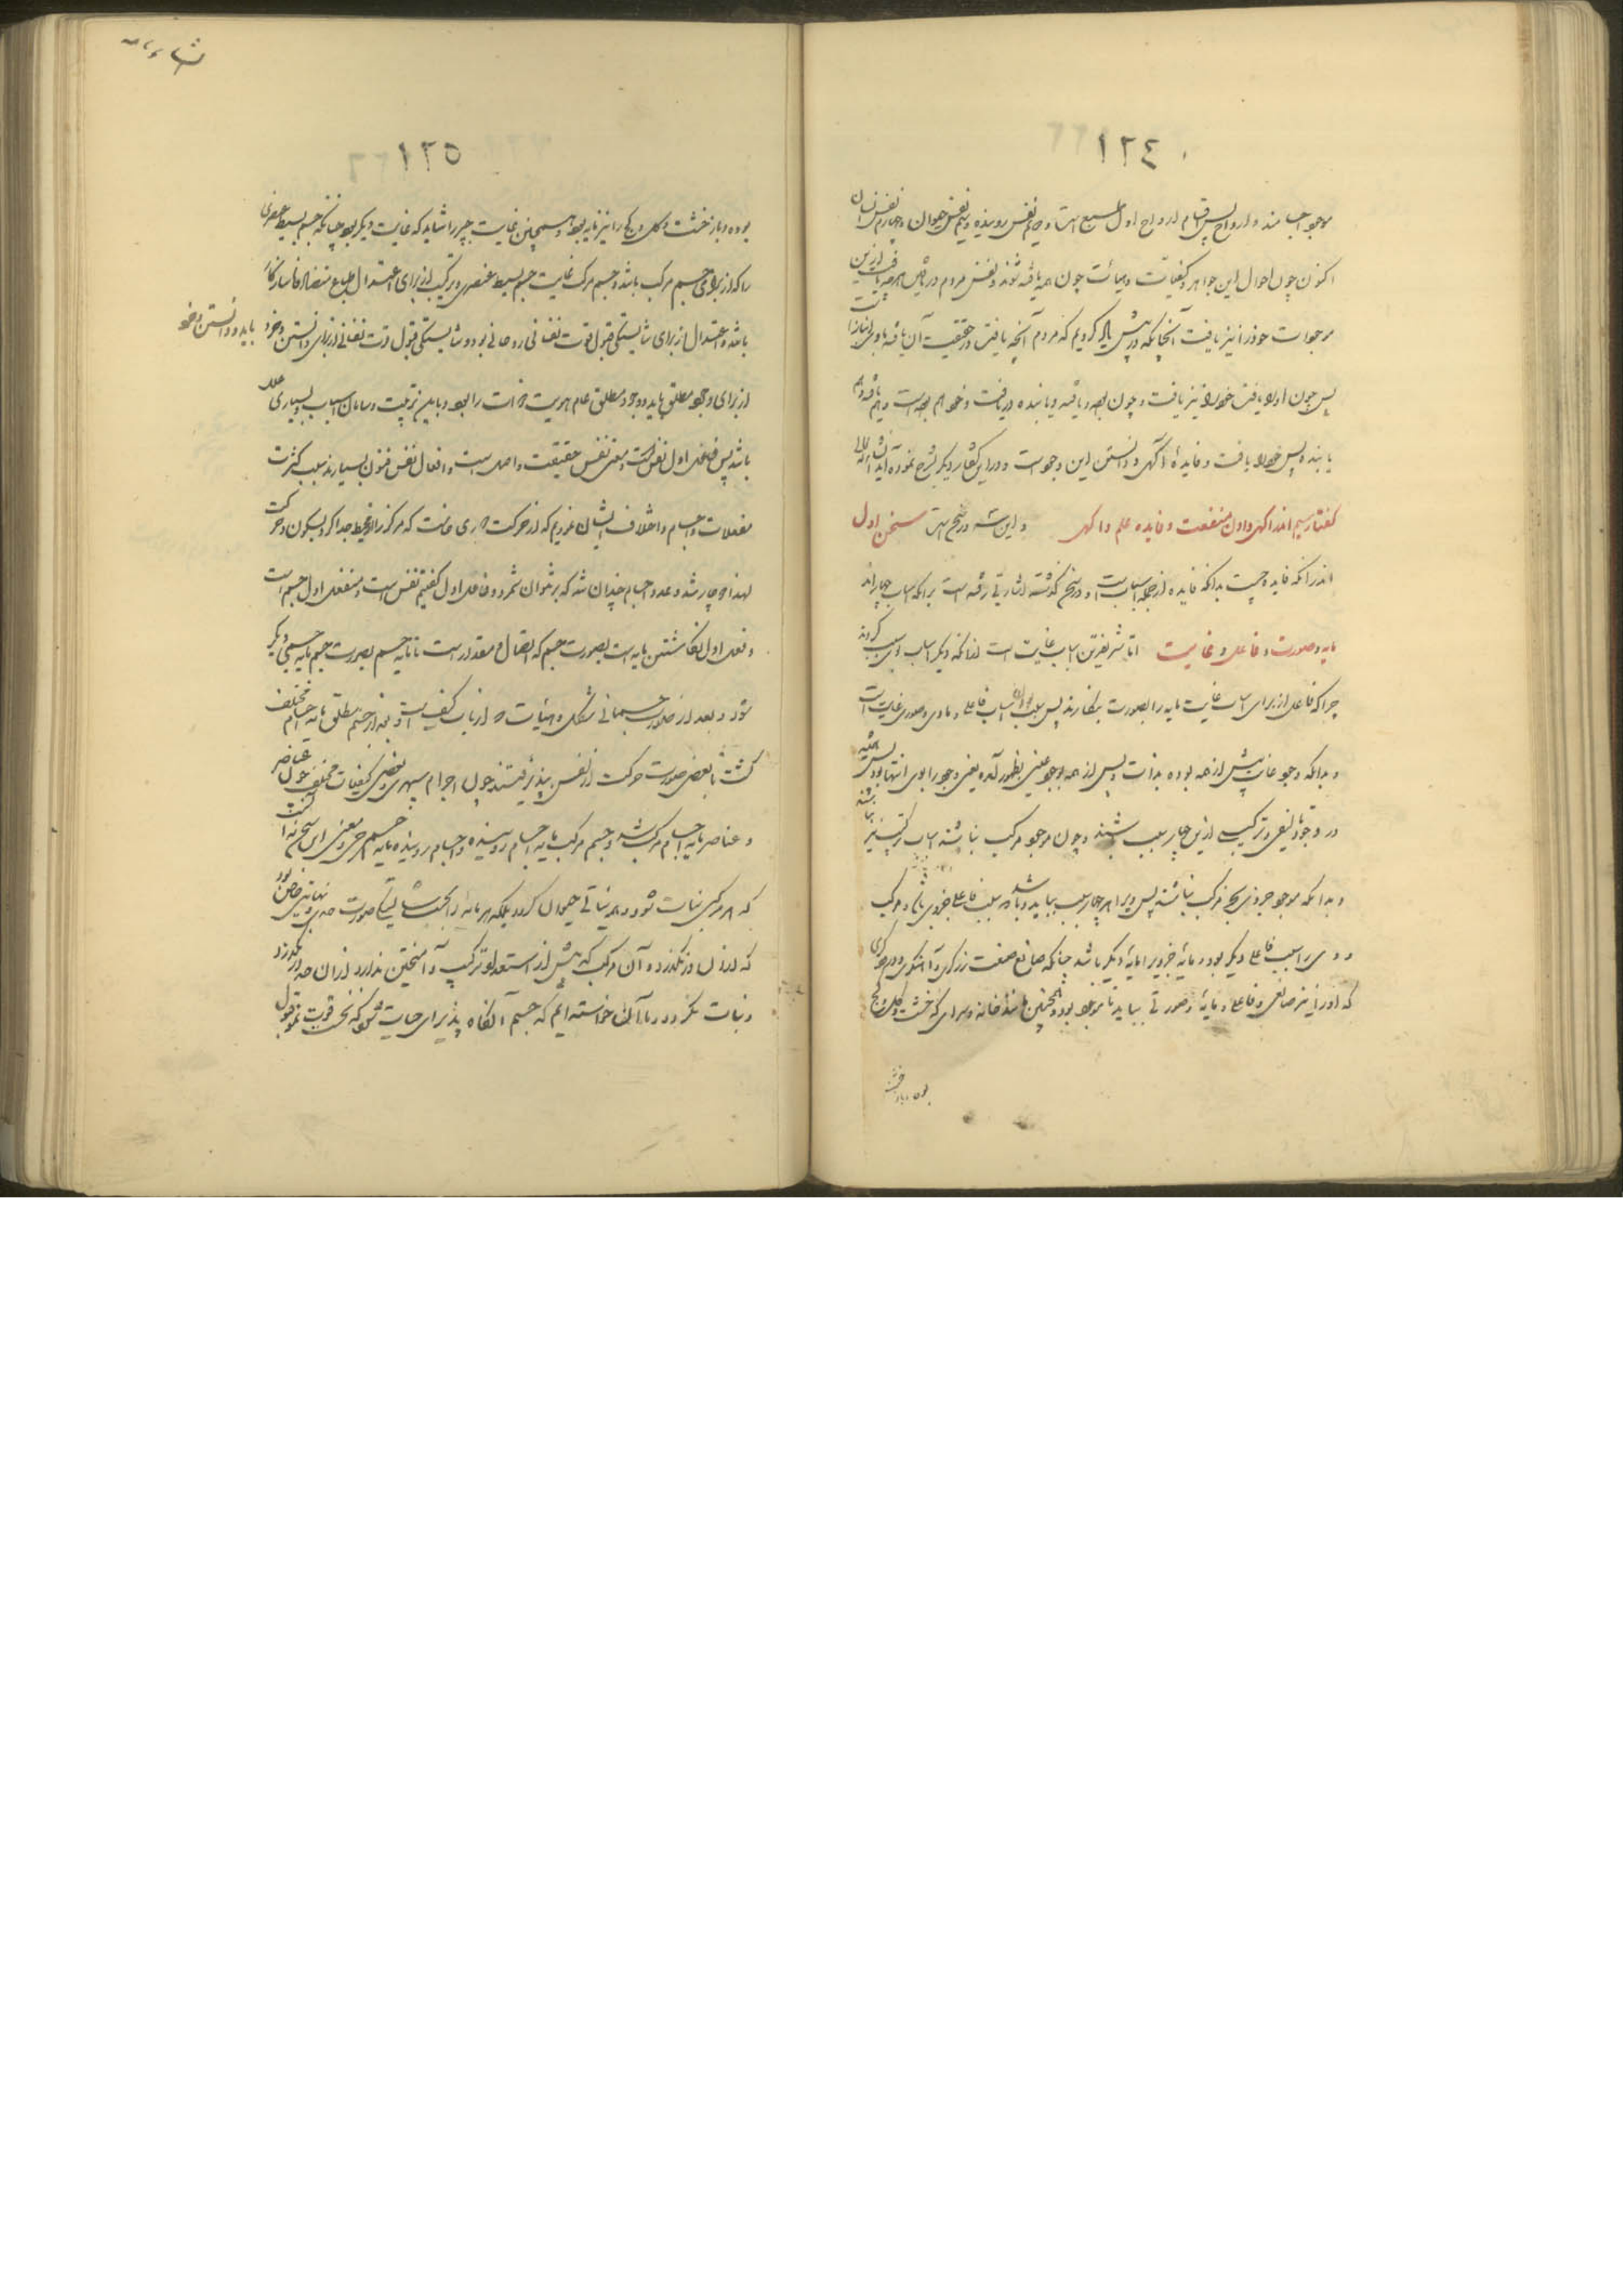 ١٢٤
موجود اجسامند و ارواح پس قسام ارواح اول طبیع است دویم نفس روینده سیم نفس حیوان چهارم نفس انسان
اکنون چون احوال این جواهر و کیفیات و هیآت چون همه یافته شوند و نفس مردم دریابنده
موجودات خود را نیز یافت آنچنانکه در پیش یاد کردیم که مردم آنچه یافت در حقیقت آن یافته باوی
پس چون او را یافت خود را نیز یافت و چون بود یافته و یابنده دریافت و خود هم بود است و هم یافته و هم
یابنده پس خود را یافت و فایدهٔ آگهی و دانستن این وجود است و در این گفتار دیگر بشرح نموده آید انشا الله تعالی
گفتار سیم اندر آگهی دادن منفعت و فایده علم و آگهی و این سه در پنج است سخن اول
اندر آنکه فایده چیست بدانکه فایده از جمله اسباب است و در سخن گذشته اشارتی رفته است بر آنکه اسباب چهارند
مایه و صورت و فاعل و غایت اما شریفترین اسباب غایت است از آنکه دیگر اسباب بوی سبب گردند
چرا که فاعل از برای غایت مایه را بصورت بنگارند پس سبب بودن اسباب فاعلی و مادی و صوری غایت است
و بدانکه وجود غایت پیش از همه بوده بذات و پس از همه بوجود عینی بظهور آمده یعنی وجود را بوی انتها بود پس همیشه
در وجود تالیفی و ترکیبی ازین چهار سبب باشند و چون موجود مرکب نباشد اسباب ترکیب نیز نباشند
و بدانکه موجود جزوی بجز مرکب نباشد پس ویرا هر چهار سبب بباید و باشد که سبب فاعلی جزوی باشد و مرکب
و وی را سبب فاعلی دیگر بود و مایهٔ جزویرا مایهٔ دیگر باشد چنانکه صانع صنعت زرگری و آهنگری و درودگری
که او را نیز صانعی و فاعلی و مایهٔ و صورتی بباید تا موجود بود و همچنین مانند خانه و سرای که خشت و گل و گچ
بوده و باز خشت
١٢٥
بوده و باز خشت و گل و گچ را نیز مایه بود و همچنین غایت چیز را شاید که غایت دیگر بود چنانکه جسم بسیط عنصری
را که از برای جسم مرکب باشد و جسم مرکب غایت جسم بسیط عنصری و ترکیب از برای اعتدال طبایع متضاد ناسازگار
باشد و اعتدال از برای شایستگی قبول قوت نفسانی روحانی بود و شایستگی قبول قوت نفسانی از برای دانستن وجود باید و دانستن وجود
از برای وجود مطلق باید و وجود مطلق عام هویت ذات را بود و باین ترتیب و سامان اسباب و بسیاری علل
باشد پس فاعل اول نفس است و معنی نفس حقیقت و اصل است و افعال نفس فنون بسیارند بسبب کثرت
منفعلات و اجسام و اختلاف ایشان نمودیم که از حرکت دوری خاست که مرکز را از محیط جدا کرد بسکون و حرکت
لهذا دو چار شد و عدد اجسام چندان شد که بر نتوان شمرد و فاعل اول گفتیم نفس است و منفعل اول جسم است
و فعل اول نگاشتن مایه است بصورت جسم که اتصال و مقدار است تا مایه جسم بصورت جسم مایه جسمی دیگر
شود و بعد از صورت جسمانی شکل و هیئات که از باب کیفیت است و بعد از جسم مطلق مایه اجسام مختلف
گشت تا بعضی صورت حرکت از نفس پذیرفتند چون اجرام سپهری و بعضی کیفیات مختلف چون عناصر
و عناصر مایه اجسام مرکب شد و جسم مرکب مایه اجسام روینده و اجسام روینده مایه جسم حی و معنی این سخن نه آنست
که هر مرکبی نبات شود و هر نباتی حیوان گردد بلکه هر مایه را بحسب شایستگی صورت حدی و نهایتی خاص بود
که از آن در نگذرد و آن مرکب که بیش از استعداد ترکیب و آمیختن ندارد از آن حد در نگذرد
و نبات نگردد و ما آن خواسته ایم که جسم آنگاه پذیرای حیات شود که نخست قوت نمو قبول